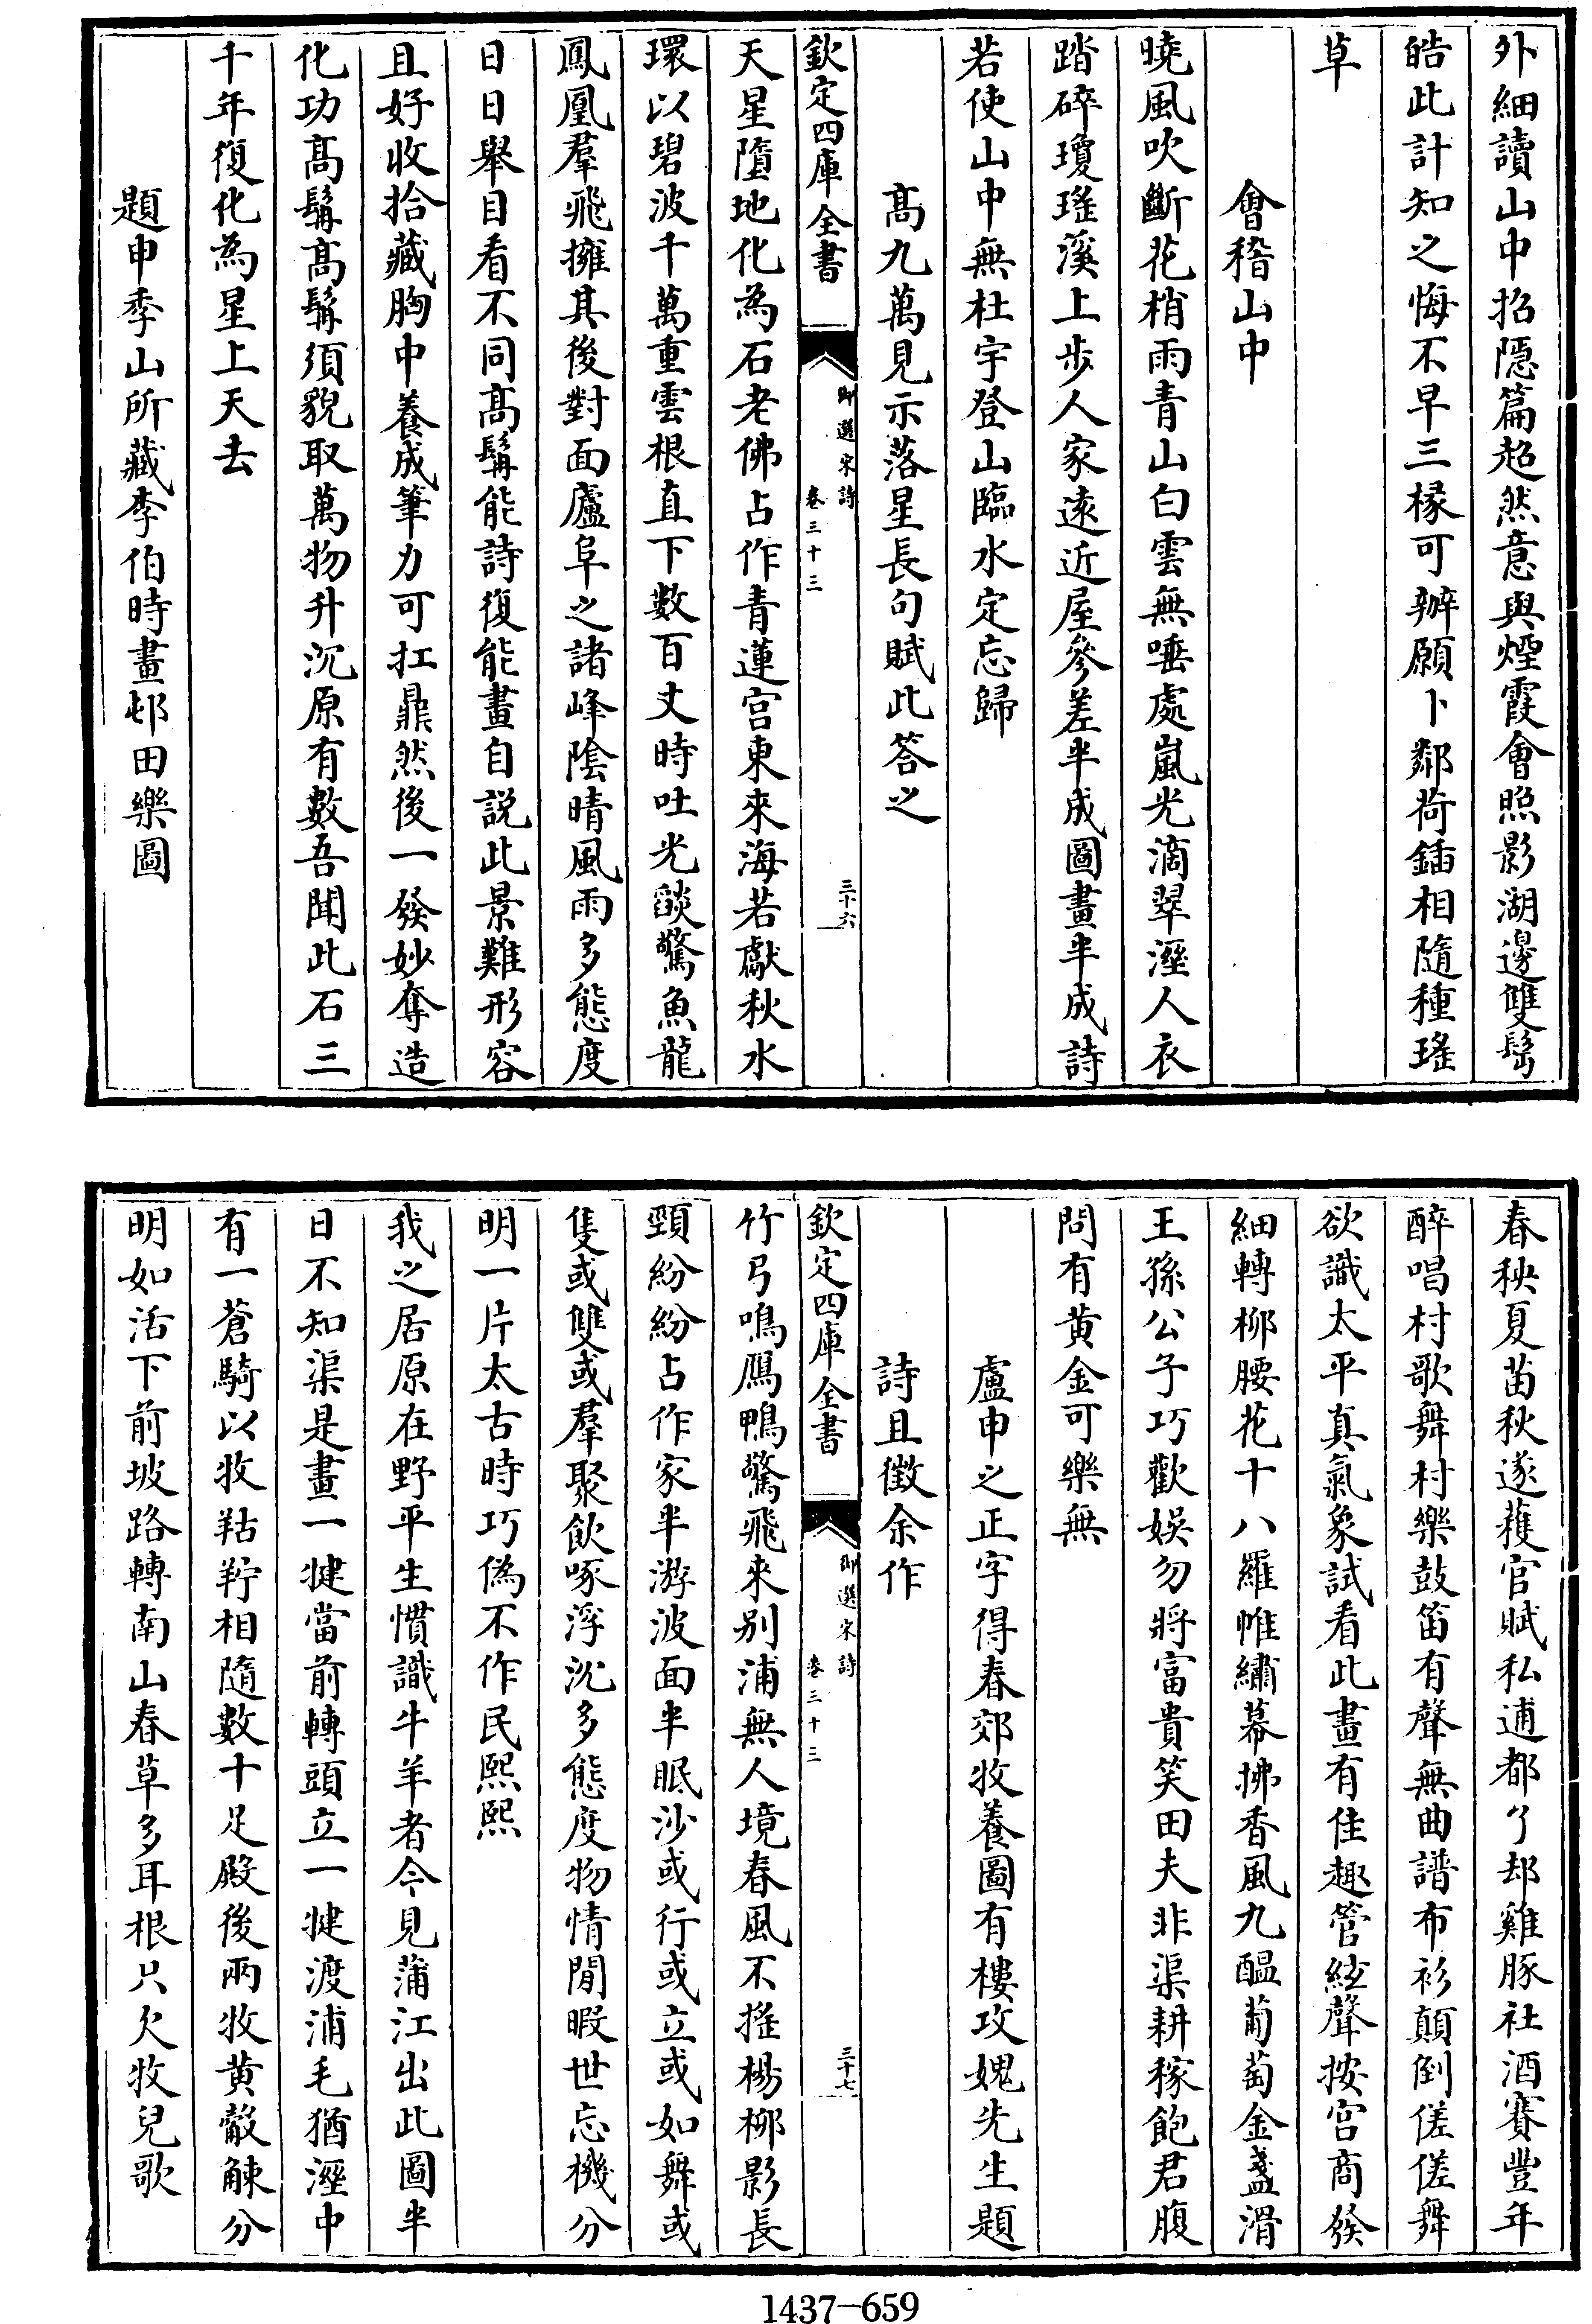 外細讀山中招隱篇超然意與煙霞會照影湖邊雙髩
皓此計知之悔不早三椽可辦願卜鄰荷鍤相隨種瑤
草
會稽山中
曉風吹斷花梢雨青山白雲無唾處嵐光滴翠溼人衣
踏碎瓊瑤溪上步人家遠近屋參差半成圖畫半成詩
若使山中無杜宇登山臨水定忘歸
髙九萬見示落星長句賦此答之
欽定四庫全書
御選宋詩
卷三十三
三十六
天星墮地化為石老佛占作青蓮宫東來海若獻秋水
環以碧波千萬重雲根直下數百丈時吐光燄驚魚龍
鳳凰羣飛擁其後對面廬阜之諸峰陰晴風雨多態度
日日舉目看不同髙髯能詩復能畫自説此景難形容
且好收拾藏胸中養成筆力可扛鼎然後一發妙奪造
化功髙髯髙髯須貌取萬物升沉原有數吾聞此石三
千年復化為星上天去
題申季山所藏李伯時畫邨田樂圖
春秧夏苗秋遂穫官賦私逋都了却雞豚社酒賽豐年
醉唱村歌舞村樂鼓笛有聲無曲譜布衫顛倒傞傞舞
欲識太平真氣象試看此畫有佳趣管絃聲按宫商發
細轉柳腰花十八羅帷繡幕拂香風九醖葡萄金盞滑
王孫公子巧歡娛勿將富貴笑田夫非渠耕稼飽君腹
問有黄金可樂無
盧申之正字得春郊牧養圖有樓攻媿先生題
詩且徴余作
欽定四庫全書
御選宋詩
卷三十三
三十七
竹弓鳴鴈鴨驚飛來别浦無人境春風不摇楊柳影長
頸紛紛占作家半游波面半眠沙或行或立或如舞或
隻或雙或羣聚飲啄浮沈多態度物情閒暇世忘機分
明一片太古時巧偽不作民熙熙
我之居原在野平生慣識牛羊者今見蒲江出此圖半
日不知渠是畫一犍當前轉頭立一犍渡浦毛猶溼中
有一蒼騎以牧羖羜相隨數十足殿後兩牧黄觳觫分
明如活下前坡路轉南山春草多耳根只欠牧兒歌
1437-659